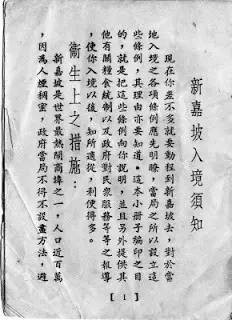 新嘉坡入境須知
現在你差不多就要動程到新嘉坡去，對於當
地入境之各項條例應先明瞭，當局之所以設立這
些條例，其理由亦要知道。這本小册子編印之目
的，就是把這些條例向你說明，並且另外提供其
他有關糧食統制以及政府對民衆服務等等之報導
，使你入境以後，知所適從，利便得多。
衞生上之措施：
新嘉坡是世界最熱鬧商埠之一，人口近百萬
，因為人煙稠密，政府當局不得不設盡方法，避
【1】